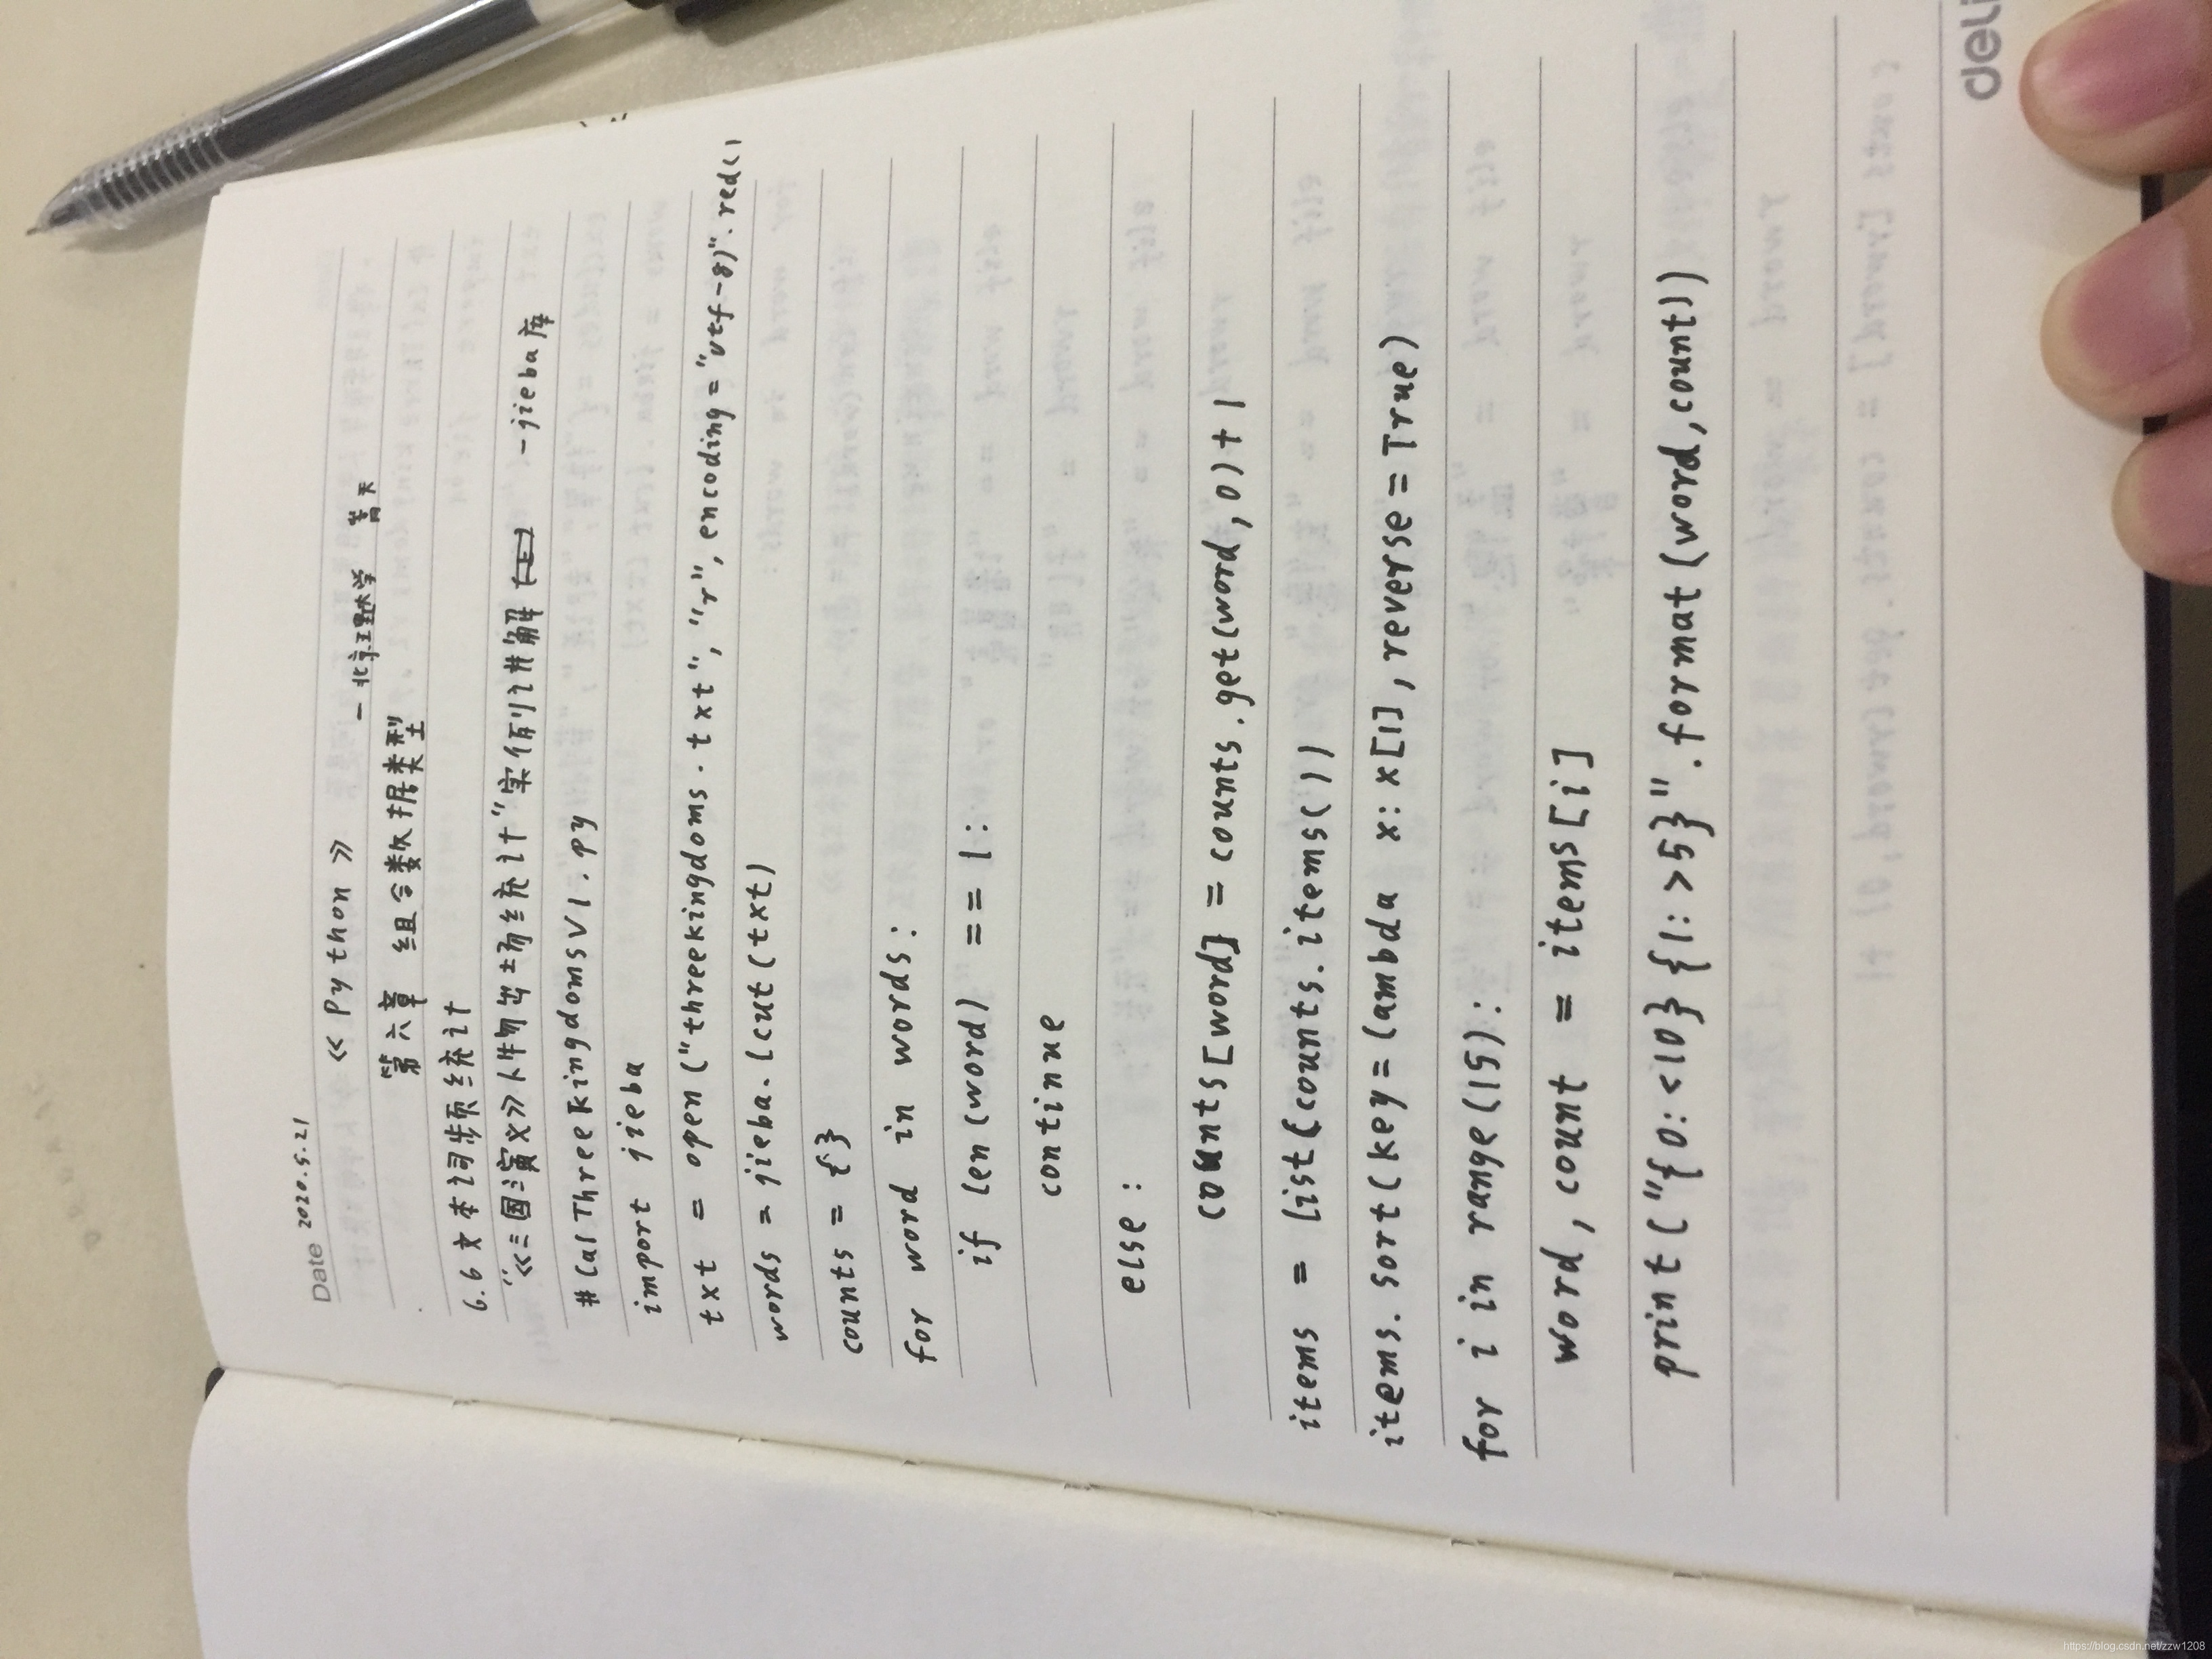 Date 2020.5.21
《Python》 —北京理工大学 嵩天
第六章 组合数据类型
6.6 文本词频统计
"《三国演义》人物出场统计"实例讲解 --jieba库
#CalThreeKingdomsV1.py
import jieba
txt = open("threekingdoms.txt","r",encoding="utf-8)".red()
words = jieba.lcut(txt)
counts = {}
for word in words:
if len(word) == 1:
continue
else:
counts[word] = counts.get(word,0)+1
items = list(counts.items())
items.sort(key=lambda x:x[1],reverse=True)
for i in range(15):
word, count = items[i]
print("{0:<10}{1:>5}".format(word,count))
deli
https://blog.csdn.net/zzw1208